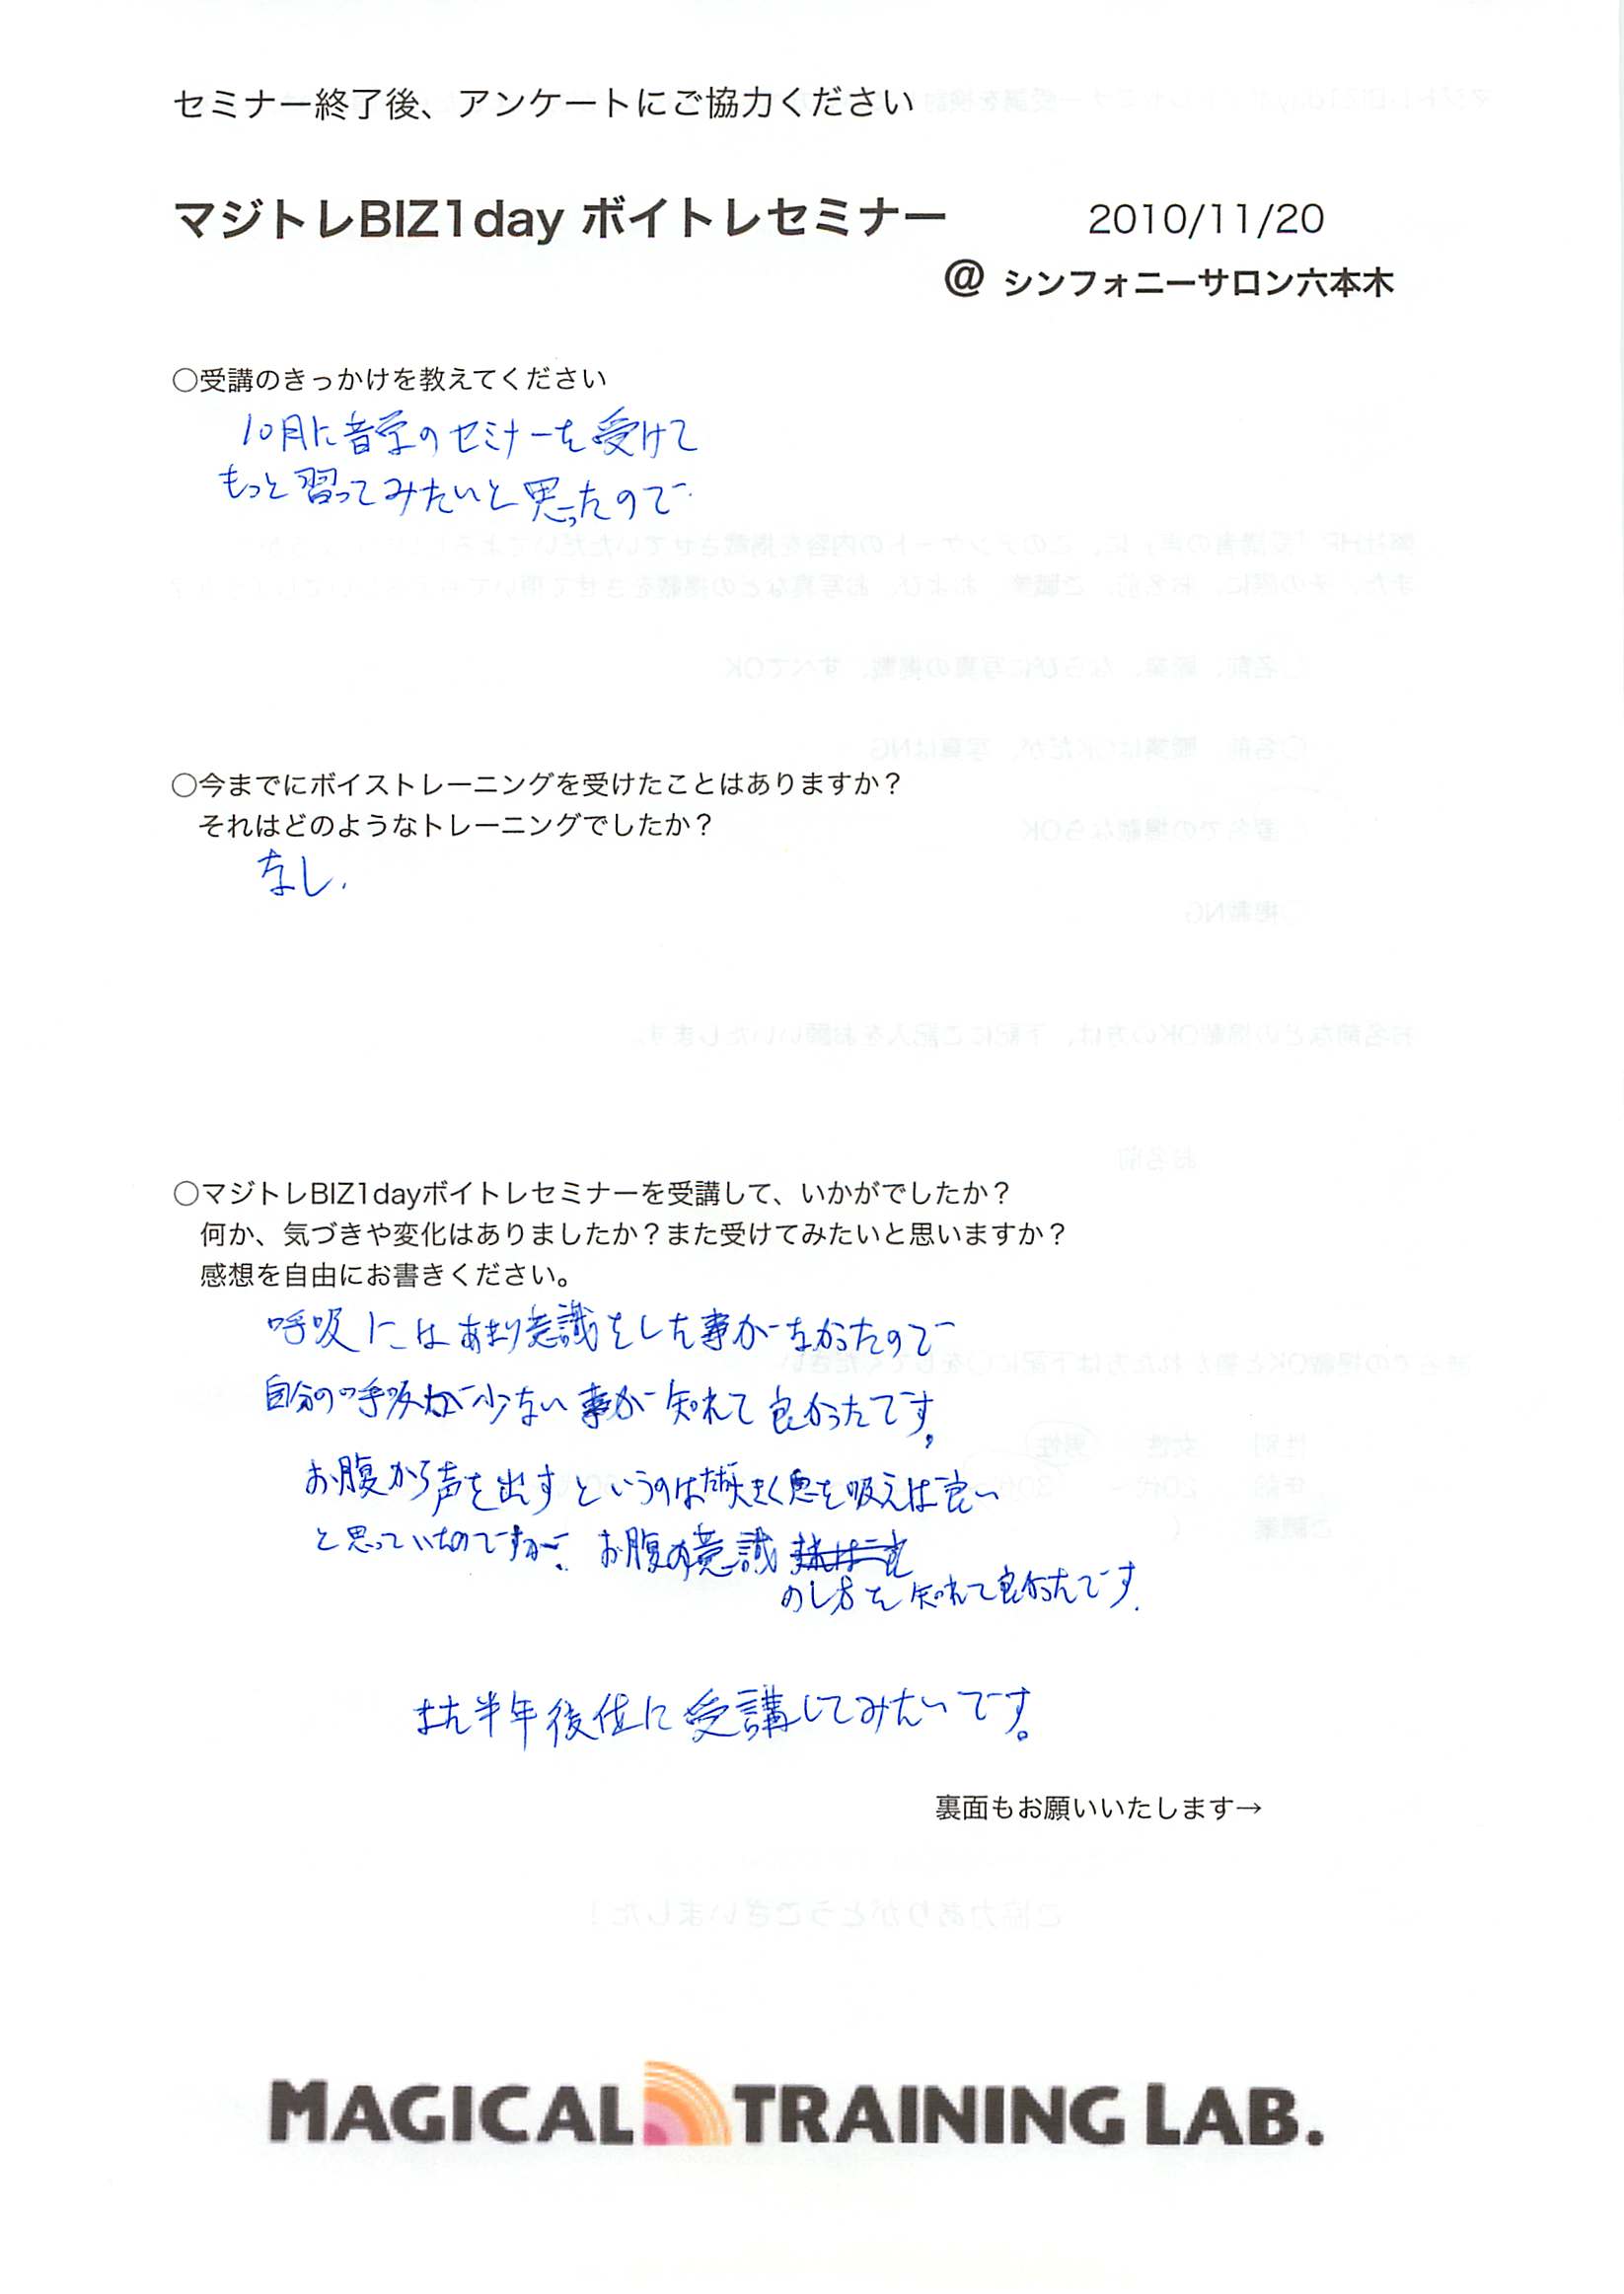 セミナー終了後、アンケートにご協力ください
マジトレBIZ1day ボイトレセミナー 2010/11/20
@ シンフォニーサロン六本木
○受講のきっかけを教えてください
10月に音学のセミナーを受けて
もっと習ってみたいと思ったので
○今までにボイストレーニングを受けたことはありますか？
それはどのようなトレーニングでしたか？
なし.
○マジトレBIZ1dayボイトレセミナーを受講して、いかがでしたか？
何か、気づきや変化はありましたか？また受けてみたいと思いますか？
感想を自由にお書きください。
呼吸にはあまり意識をした事がなかったので
自分の呼吸が少ない事が知れて良かったです。
お腹から声を出すというのはただ大きく息を吸えば良い
と思っていたのですが、お腹の意識
のし方を知れて良かったです.
また半年後位に受講してみたいです。
裏面もお願いいたします→
MAGICAL TRAINING LAB.